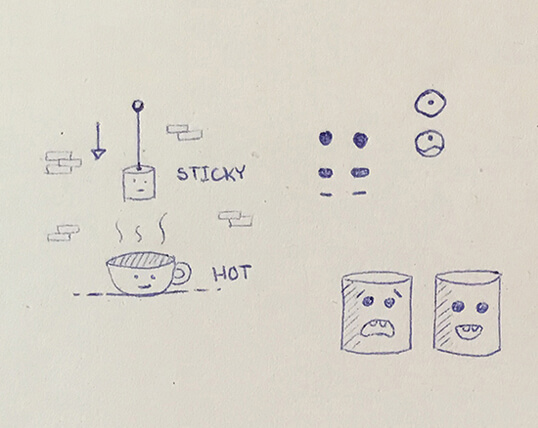 STICKY
HOT